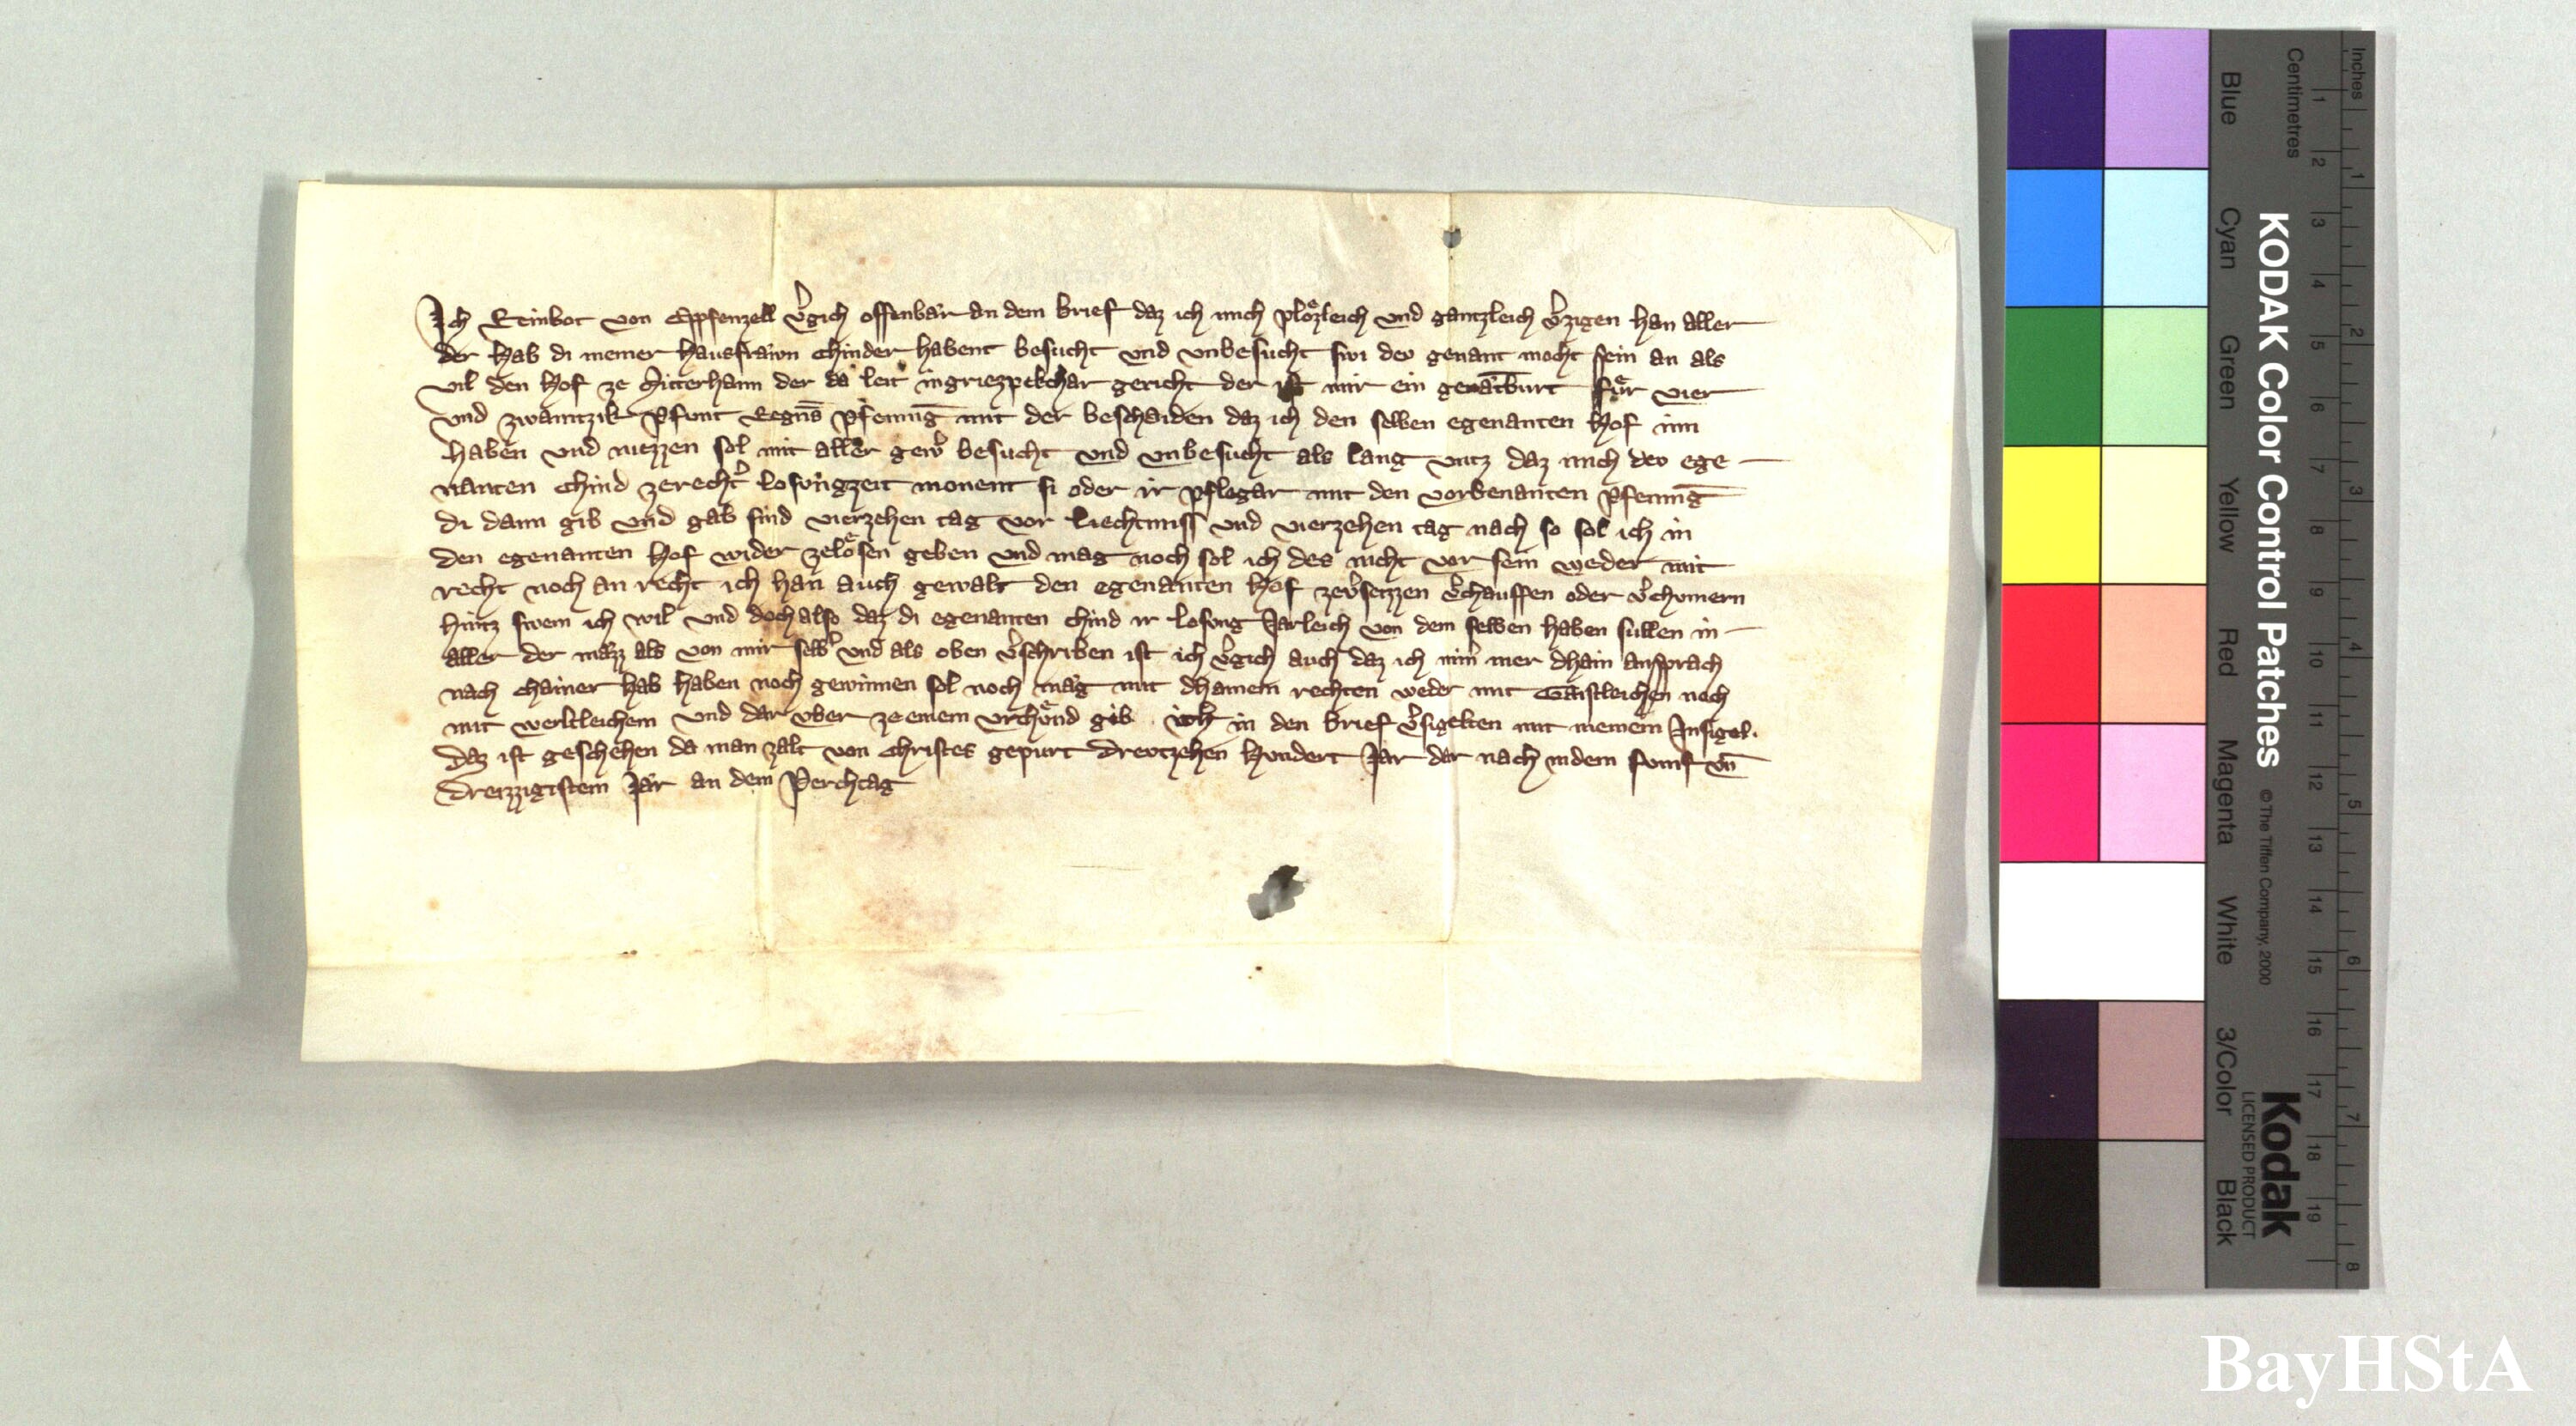 Ich Reinbot von Epfenzell vͤgich offenbar an dem brief daz ich mich plozͤleich vnd gantzleich vͤzigen han aller
der hab di meiner hausfrawn chinder habent besucht vnd vnbesucht swi dev genant mocht sein an als
vil den hof ze Mitterhaim der da leit in griezpekchar gericht der ist mir ein geantburt fuͤr vier
vnd zwaintzik pfunt Regnš pfenning mit der beschaiden daz ich den selben egenanten hof inn
haben vnd niezzen sol mit aller gewͤ besucht vnd vnbesucht als lang vntz daz mich dev ege
nanten chind zerechtͤ losungzeit monent si oder ir pflegar mit den vorbenanten pfenning
di dann gib vnd gab sind vierzehen tag vor Liechtmiss vnd vierzehen tag nach so sol ich in
den egenanten hof wider zeloͤsen geben vnd mag noch sol ich des nicht vor sein weder mit
recht noch an recht ich han auch gewalt den egenanten hof zevͤsetzzen vͤchauffen oder vͤchvmern
hintz swem ich wil vnd doch also daz di egenanten chind ir losung Jarleich von dem selben haben sullen in
aller der mazz als von mir selbͤ vnd als oben vͤschriben ist ich vͤgich auch daz ich nimͤ mer dhain ansprach
nach chainer hab haben noch gewinnen sol noch mag mit dhainem rechten weder mit Gaistleichen noch
mit werltleichem vnd dar vber ze einem vrchuͤnd gib ich in den brief vͤsigelten mit meinem Insigel.
daz ist geschehen da man zalt von Christes gepurt drevtzehen hvndert Jar dar nach indem funf vn̄
dreizzigistem Jar an dem Perchtag
Inches
Centimetres
1 2 3 4 5 6 7 8
1 2 3 4 5 6 7 8 9 10 11 12 13 14 15 16 17 18 19
KODAK Color Control Patches
© The Tiffen Company, 2000
Kodak
LICENSED PRODUCT
Blue Cyan Green Yellow Red Magenta White 3/Color Black
BayHStA